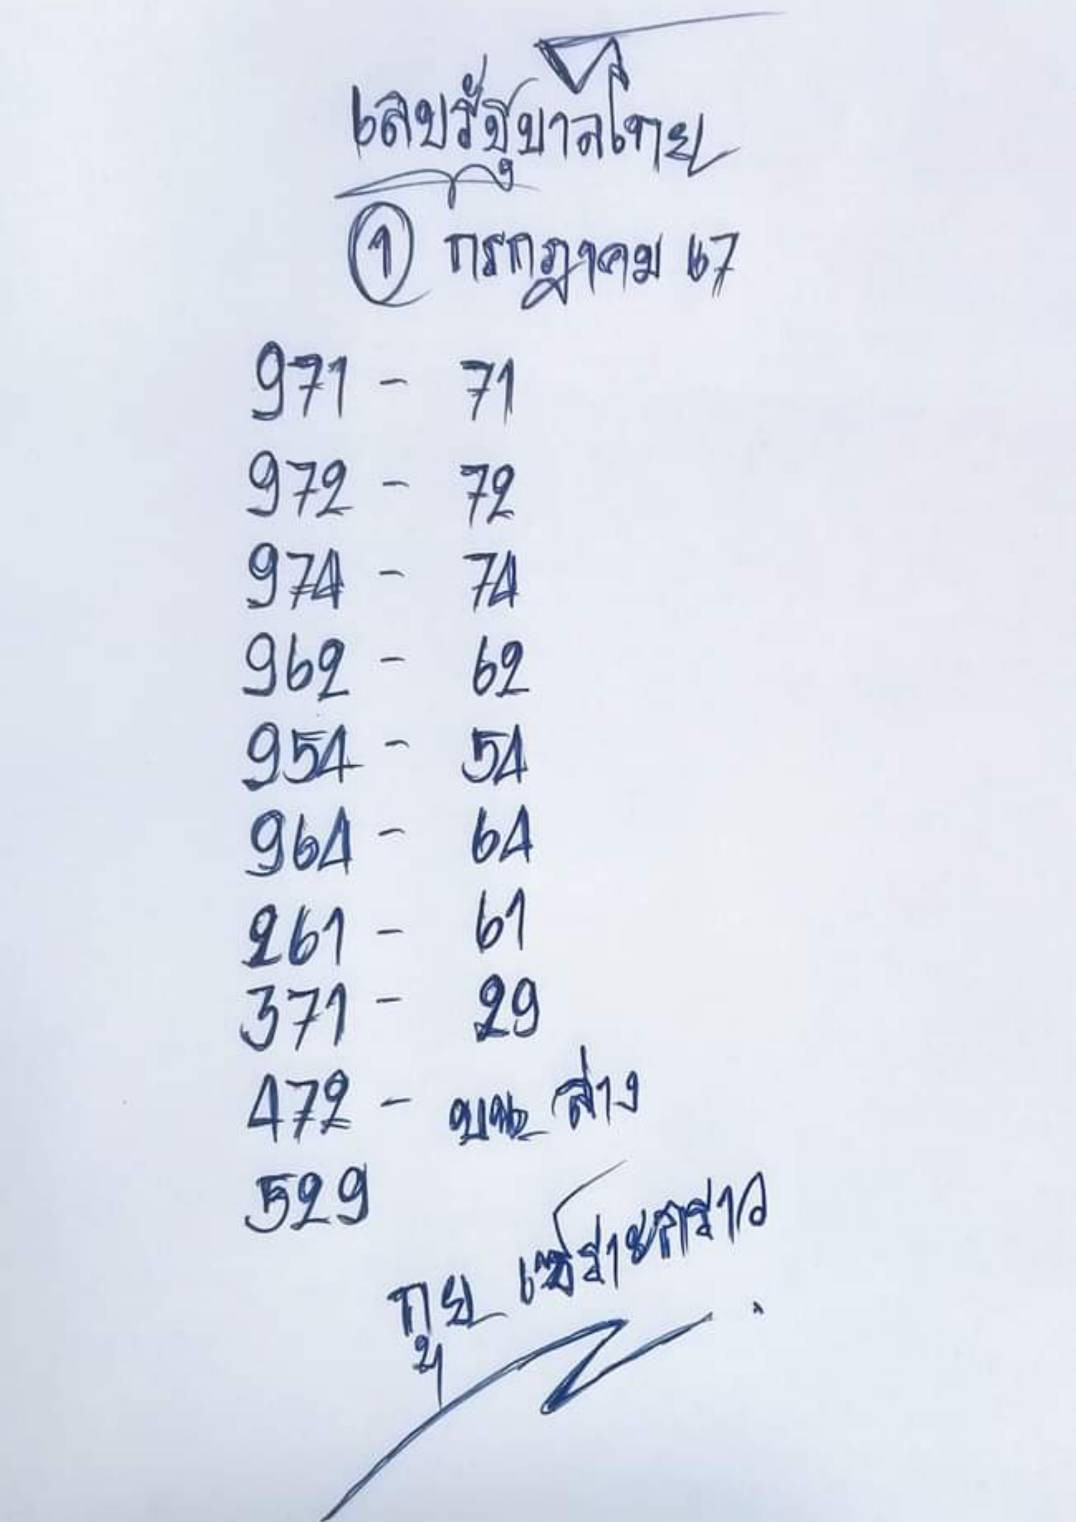 เลขรัฐบาลไทย
① กรกฎาคม 67
971 - 71
972 - 72
974 - 74
962 - 62
954 - 54
964 - 64
261 - 61
371 - 29
472 - บน ล่าง
529